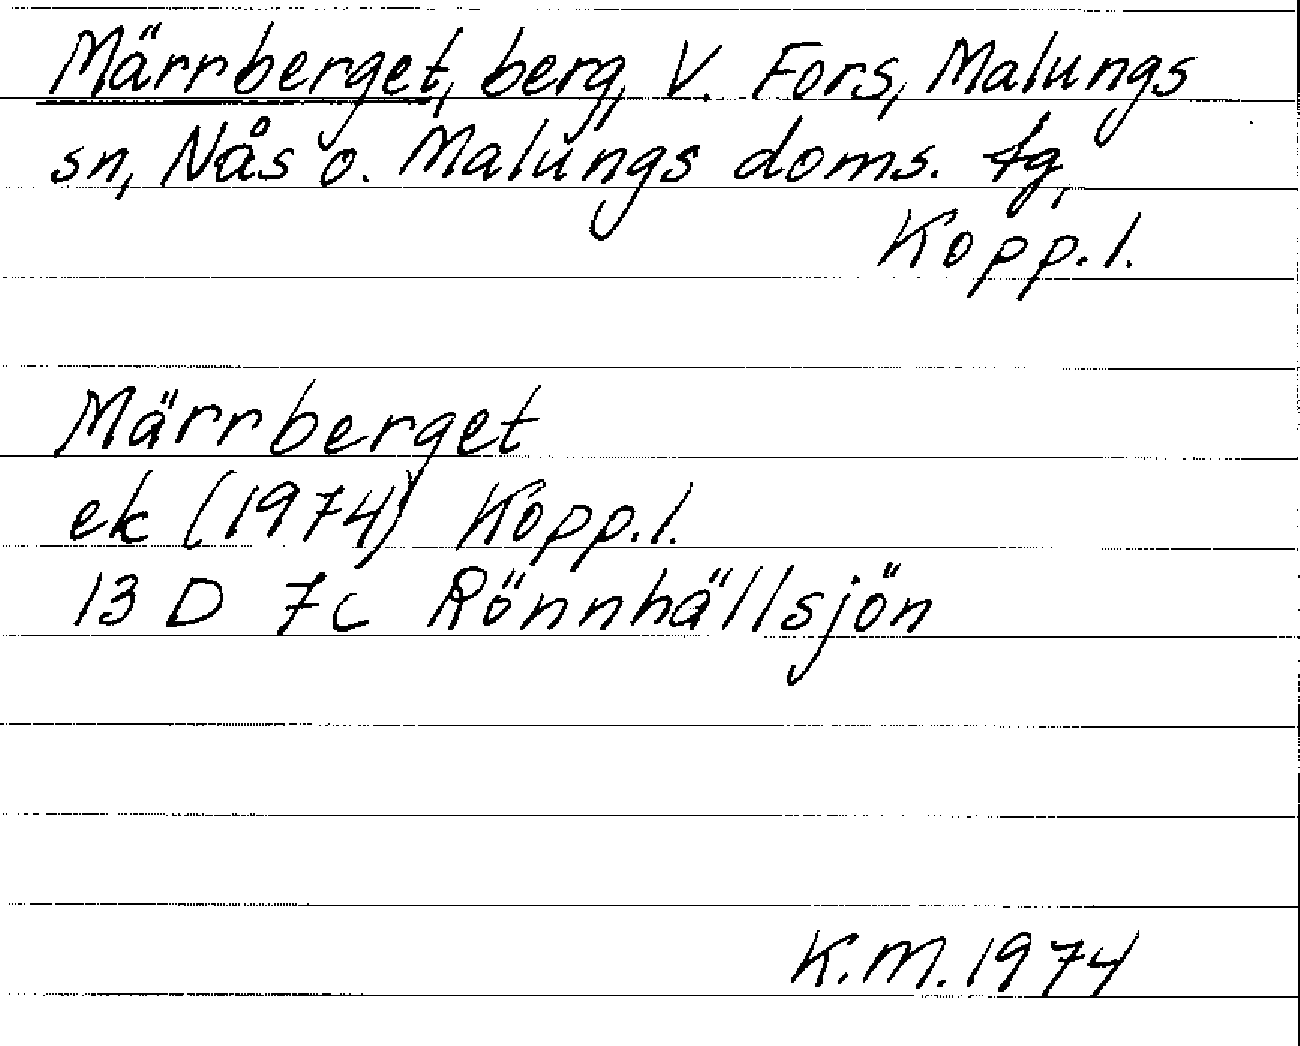 Märrberget, berg, V. Fors, Malungs
sn, Nås o. Malungs doms. tg,
Kopp.l.
Märrberget
ek (1974) Kopp.l.
13 D 7c Rönnhällsjön
K.M. 1974